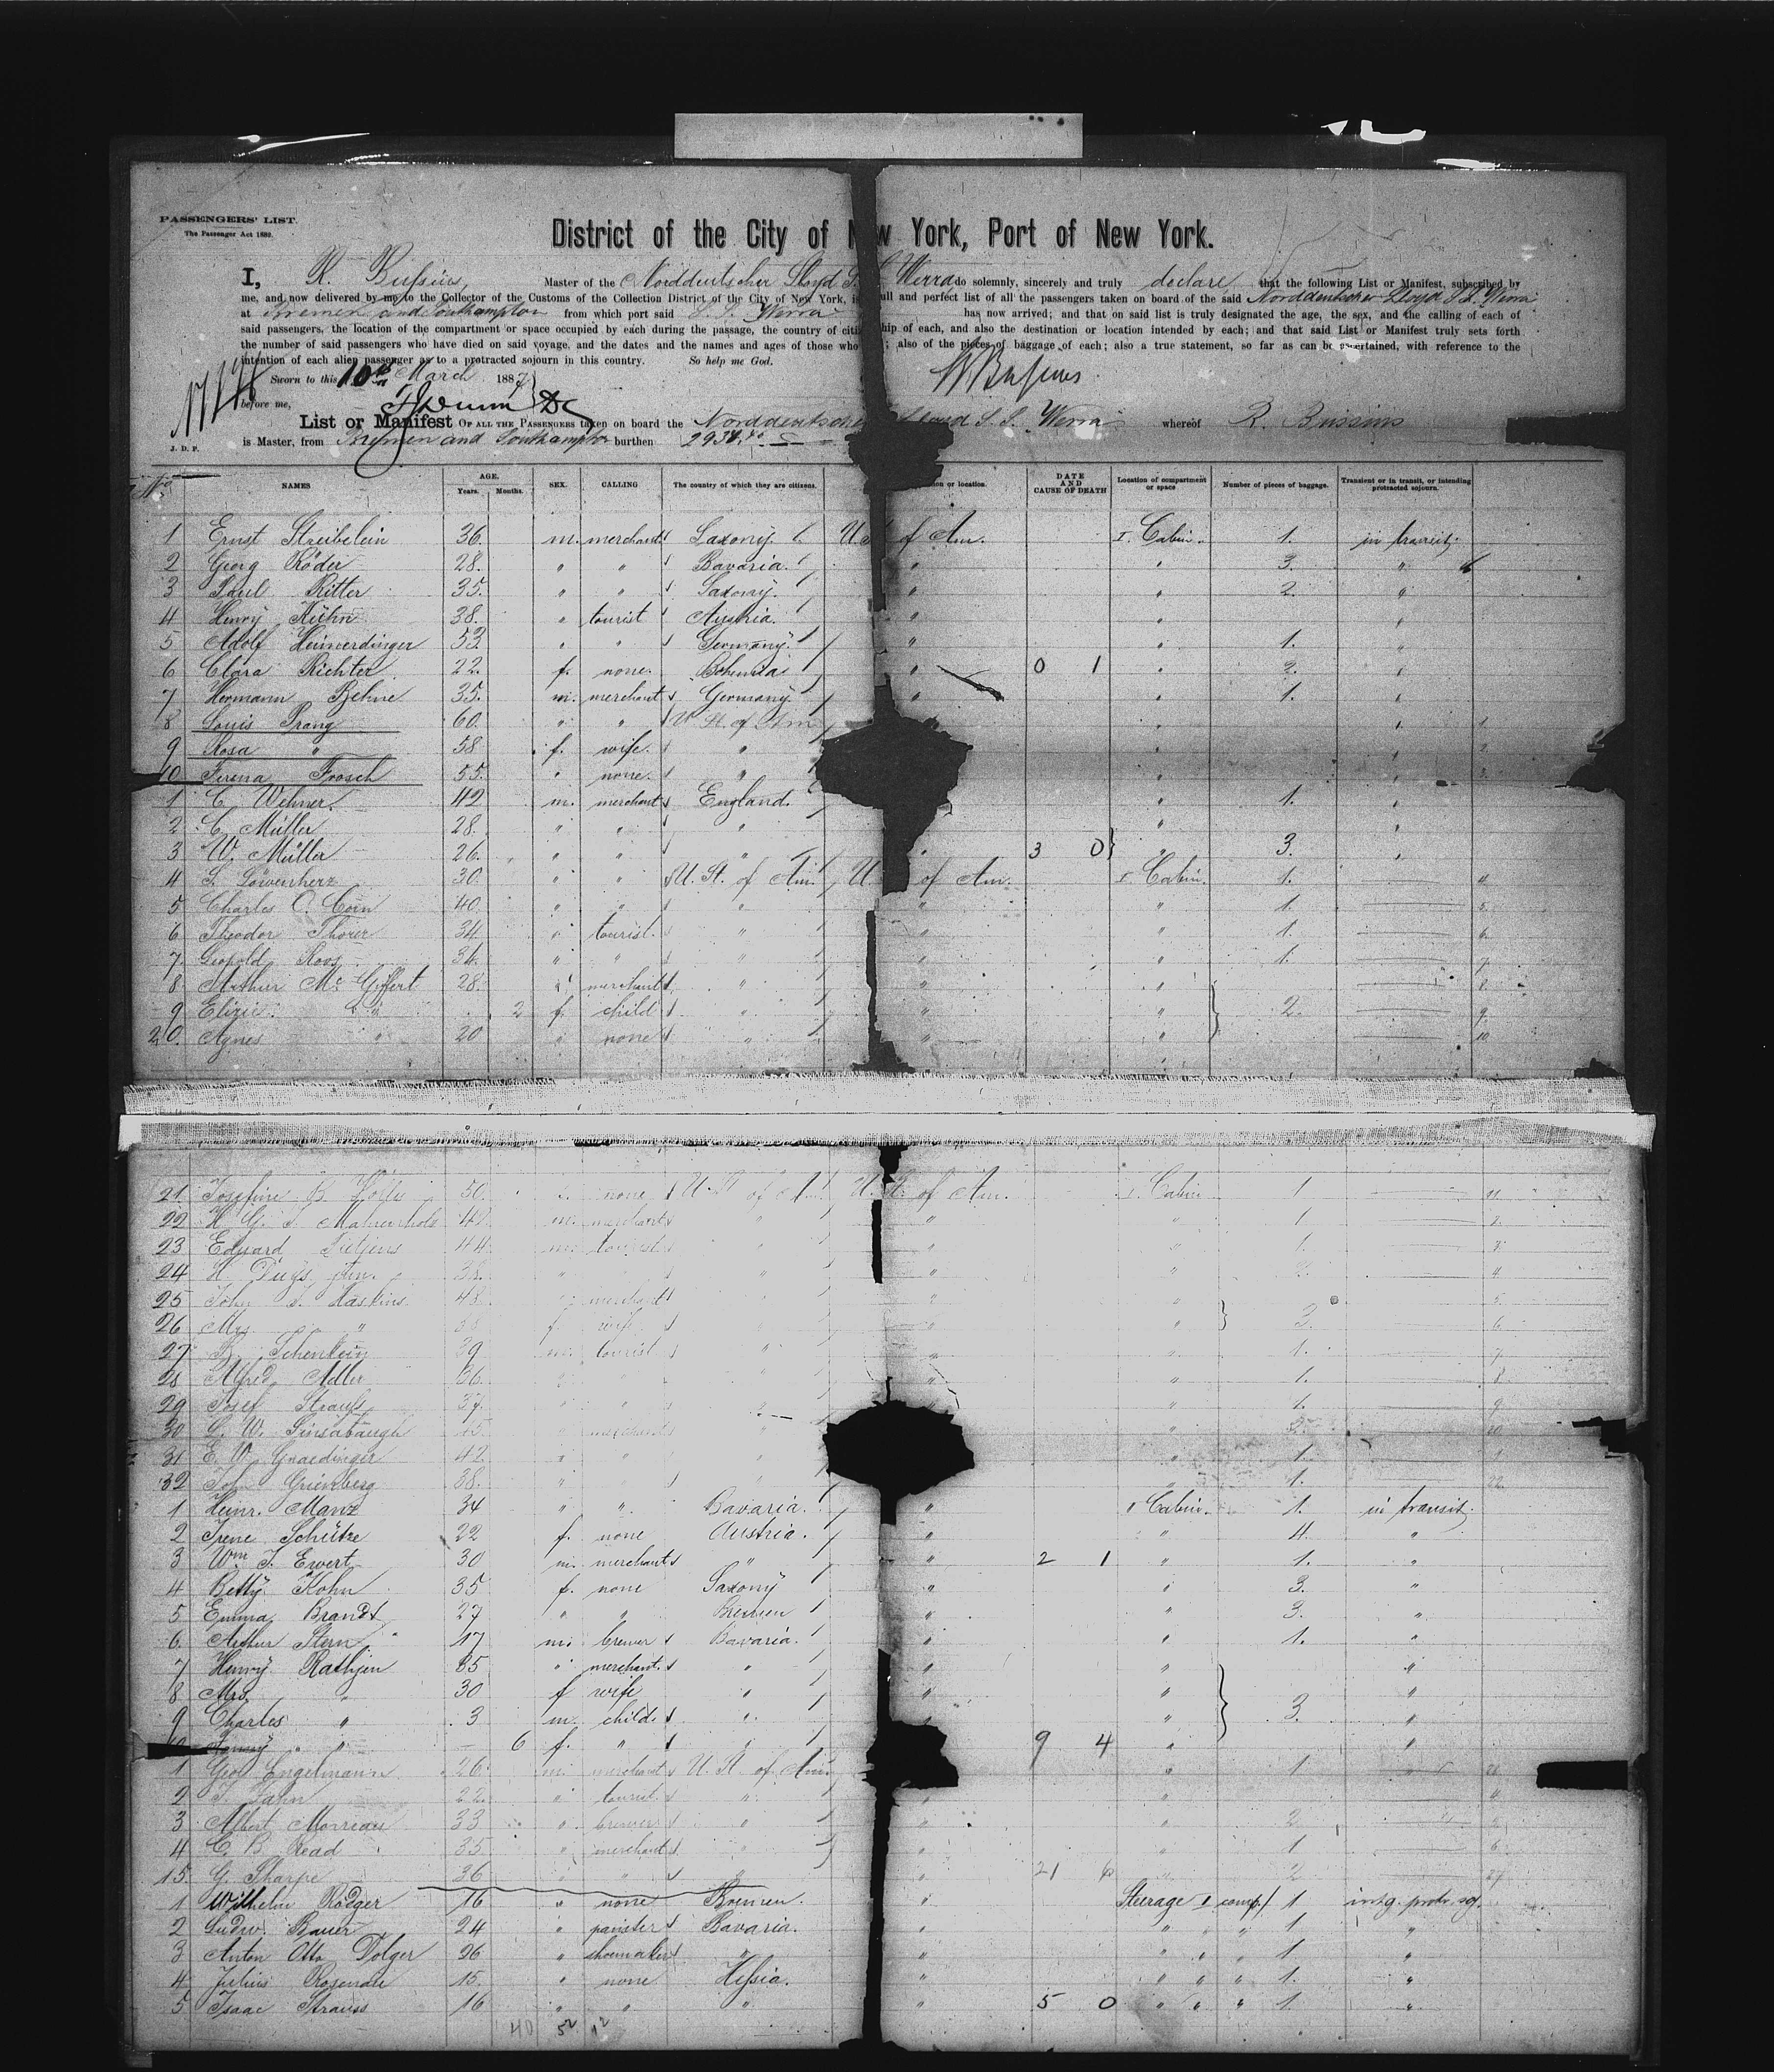 PASSENGERS' LIST.
The Passenger Act 1882.
District of the City of New York, Port of New York.
I, R. Bussius, Master of the Norddeutscher Lloyd S. S. Werra do solemnly, sincerely and truly declare that the following List or Manifest, subscribed by
me, and now delivered by me to the Collector of the Customs of the Collection District of the City of New York, is full and perfect list of all the passengers taken on board of the said Norddeutscher Lloyd S. S. Werra
at Bremen and Southampton from which port said S. S. Werra has now arrived; and that on said list is truly designated the age, the sex, and the calling of each of
said passengers, the location of the compartment or space occupied by each during the passage, the country of citizenship of each, and also the destination or location intended by each; and that said List or Manifest truly sets forth
the number of said passengers who have died on said voyage, and the dates and the names and ages of those who ; also of the pieces of baggage of each; also a true statement, so far as can be ascertained, with reference to the
intention of each alien passenger as to a protracted sojourn in this country. So help me God.
Sworn to this 10th March 1887
R Bussius
before me,
List or Manifest OF ALL THE PASSENGERS taken on board the Norddeutscher Lloyd S. S. Werra whereof R. Bussius
is Master, from Bremen and Southampton burthen
J. D. P.
No NAMES AGE. Years. Months. SEX. CALLING The country of which they are citizens. or location. DATE AND CAUSE OF DEATH Location of compartment or space Number of pieces of baggage. Transient or in transit, or intending protracted sojourn.
1 Ernst Streibelein 36. m. merchant Saxony. U. S of Am. I. Cabin. 1. in transit.
2 Georg Röder 28. " " Bavaria. " " 3. "
3 Paul Ritter 35. " " Saxony. " " 2. "
4 Henry Kühn 38. " tourist Austria. " " "
5 Adolf Heimerdinger 53 " " Germany. " " 1. "
6 Clara Richter 22. f. none. Bohemia " 0 1 " 2. "
7 Hermann Behne 35. m. merchant Germany. " " 1. "
8 Louis Prang 60. " " U. St. of Am " " 1.
9 Rosa " 58 f. wife. " " " 2.
10 Frosch 55. " none. " " " 3.
1 C. Wehner. 42 m. merchant England. " 1. "
2 C. Müller 28. " " " " "
3 W. Müller 26. " " " " 3 0 " 3. "
4 S. Löwenherz 30. " " U. St. of Am. U. of Am. I. Cabin. 1. 4
5 Charles O. Corn 40. " " " " " 1. 5
6 Theodor Thorer 34 " tourist. " " " 1. 6
7. Leopold Roos 36. " " " " " 1. 7
8 Arthur Mc Giffert 28. " merchant " " " 8
9 " 2 f. child " " " 2. 9
20. Agnes " 20 " none " " " 10
21. Josefine B. 50. none U. St of Am. U. St. of Am. I. Cabin 1 11
22 H. G. F. Mahrenholz 42 m. merchant " " " 1 2
23 Eduard Tietjens 44. m. tourist " " " 1. 3
24 H. Duys jun. 38. " " " " " 2. 4
25 John S. Haskins. 48. merchant " " 5
26 Mrs. " f wife " " " 3. 6
27 29 m. tourist " " " 1. 7
28 Alfred Adler 36. " " " " " 1. 8
29 Josef Strauss 37. " " " " " 1. 9
30 G. W. Sinsabaugh 45. " merchant " " 20
31 E. W. Gnaedinger 42. " " 1. 1
32 John Grünberg 38. " " " 1. 22.
1 Heinr. Manz 34 " " Bavaria. " " Cabin. 1. in transit.
2 Irene Schütze 22 f. none Austria. " " 4. "
3 Wm. J. Ewert 30 m. merchant " " 2 1 " 1. "
4 Betty Kohn 35 f. none Saxony " " 3. "
5 Emma Brandt 27 " " Bremen " " 3. "
6. Arthur Stern 17 m. brewer Bavaria. " " 1. "
7 Henry Rathjen 35 " merchant " " " "
8 Mrs. " 30 f wife " " " "
9 Charles " 3 m. child " " " 3. "
10 Fanny " 6 f. " " 9 4 " "
1 Geo. Engelmann 26. m. merchant U. St. of Am. " 1
2 22. " tourist " " "
3 Albert Morreau 33 " brewer " " " 2
4 C. B. Read 35 " merchant " " 1 6
15. G. Sharpe 36 " " " " 21 6 " 2 27
1 Wilhelm Rödger 16 " none Bremen. " Steerage I comp. 1 intg. protr. soj.
2 Ludw. Bauer 24 " painter Bavaria. " " " " 1 "
3 Anton Otto Dolger 26 " shoemaker " " " " " 1 "
4 Julius Rosenau 15. " none Hessia. " " " " 1. "
5 Isaac Strauss 16 " " " " 5 0 " " " 1. "
40 52 12